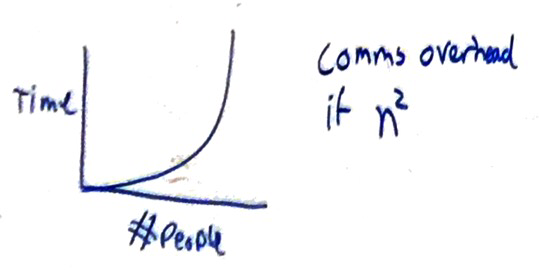 Time
# People
Comms overhead
if n²